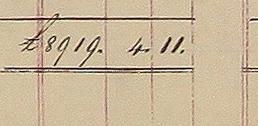 £8919. 4. 11.